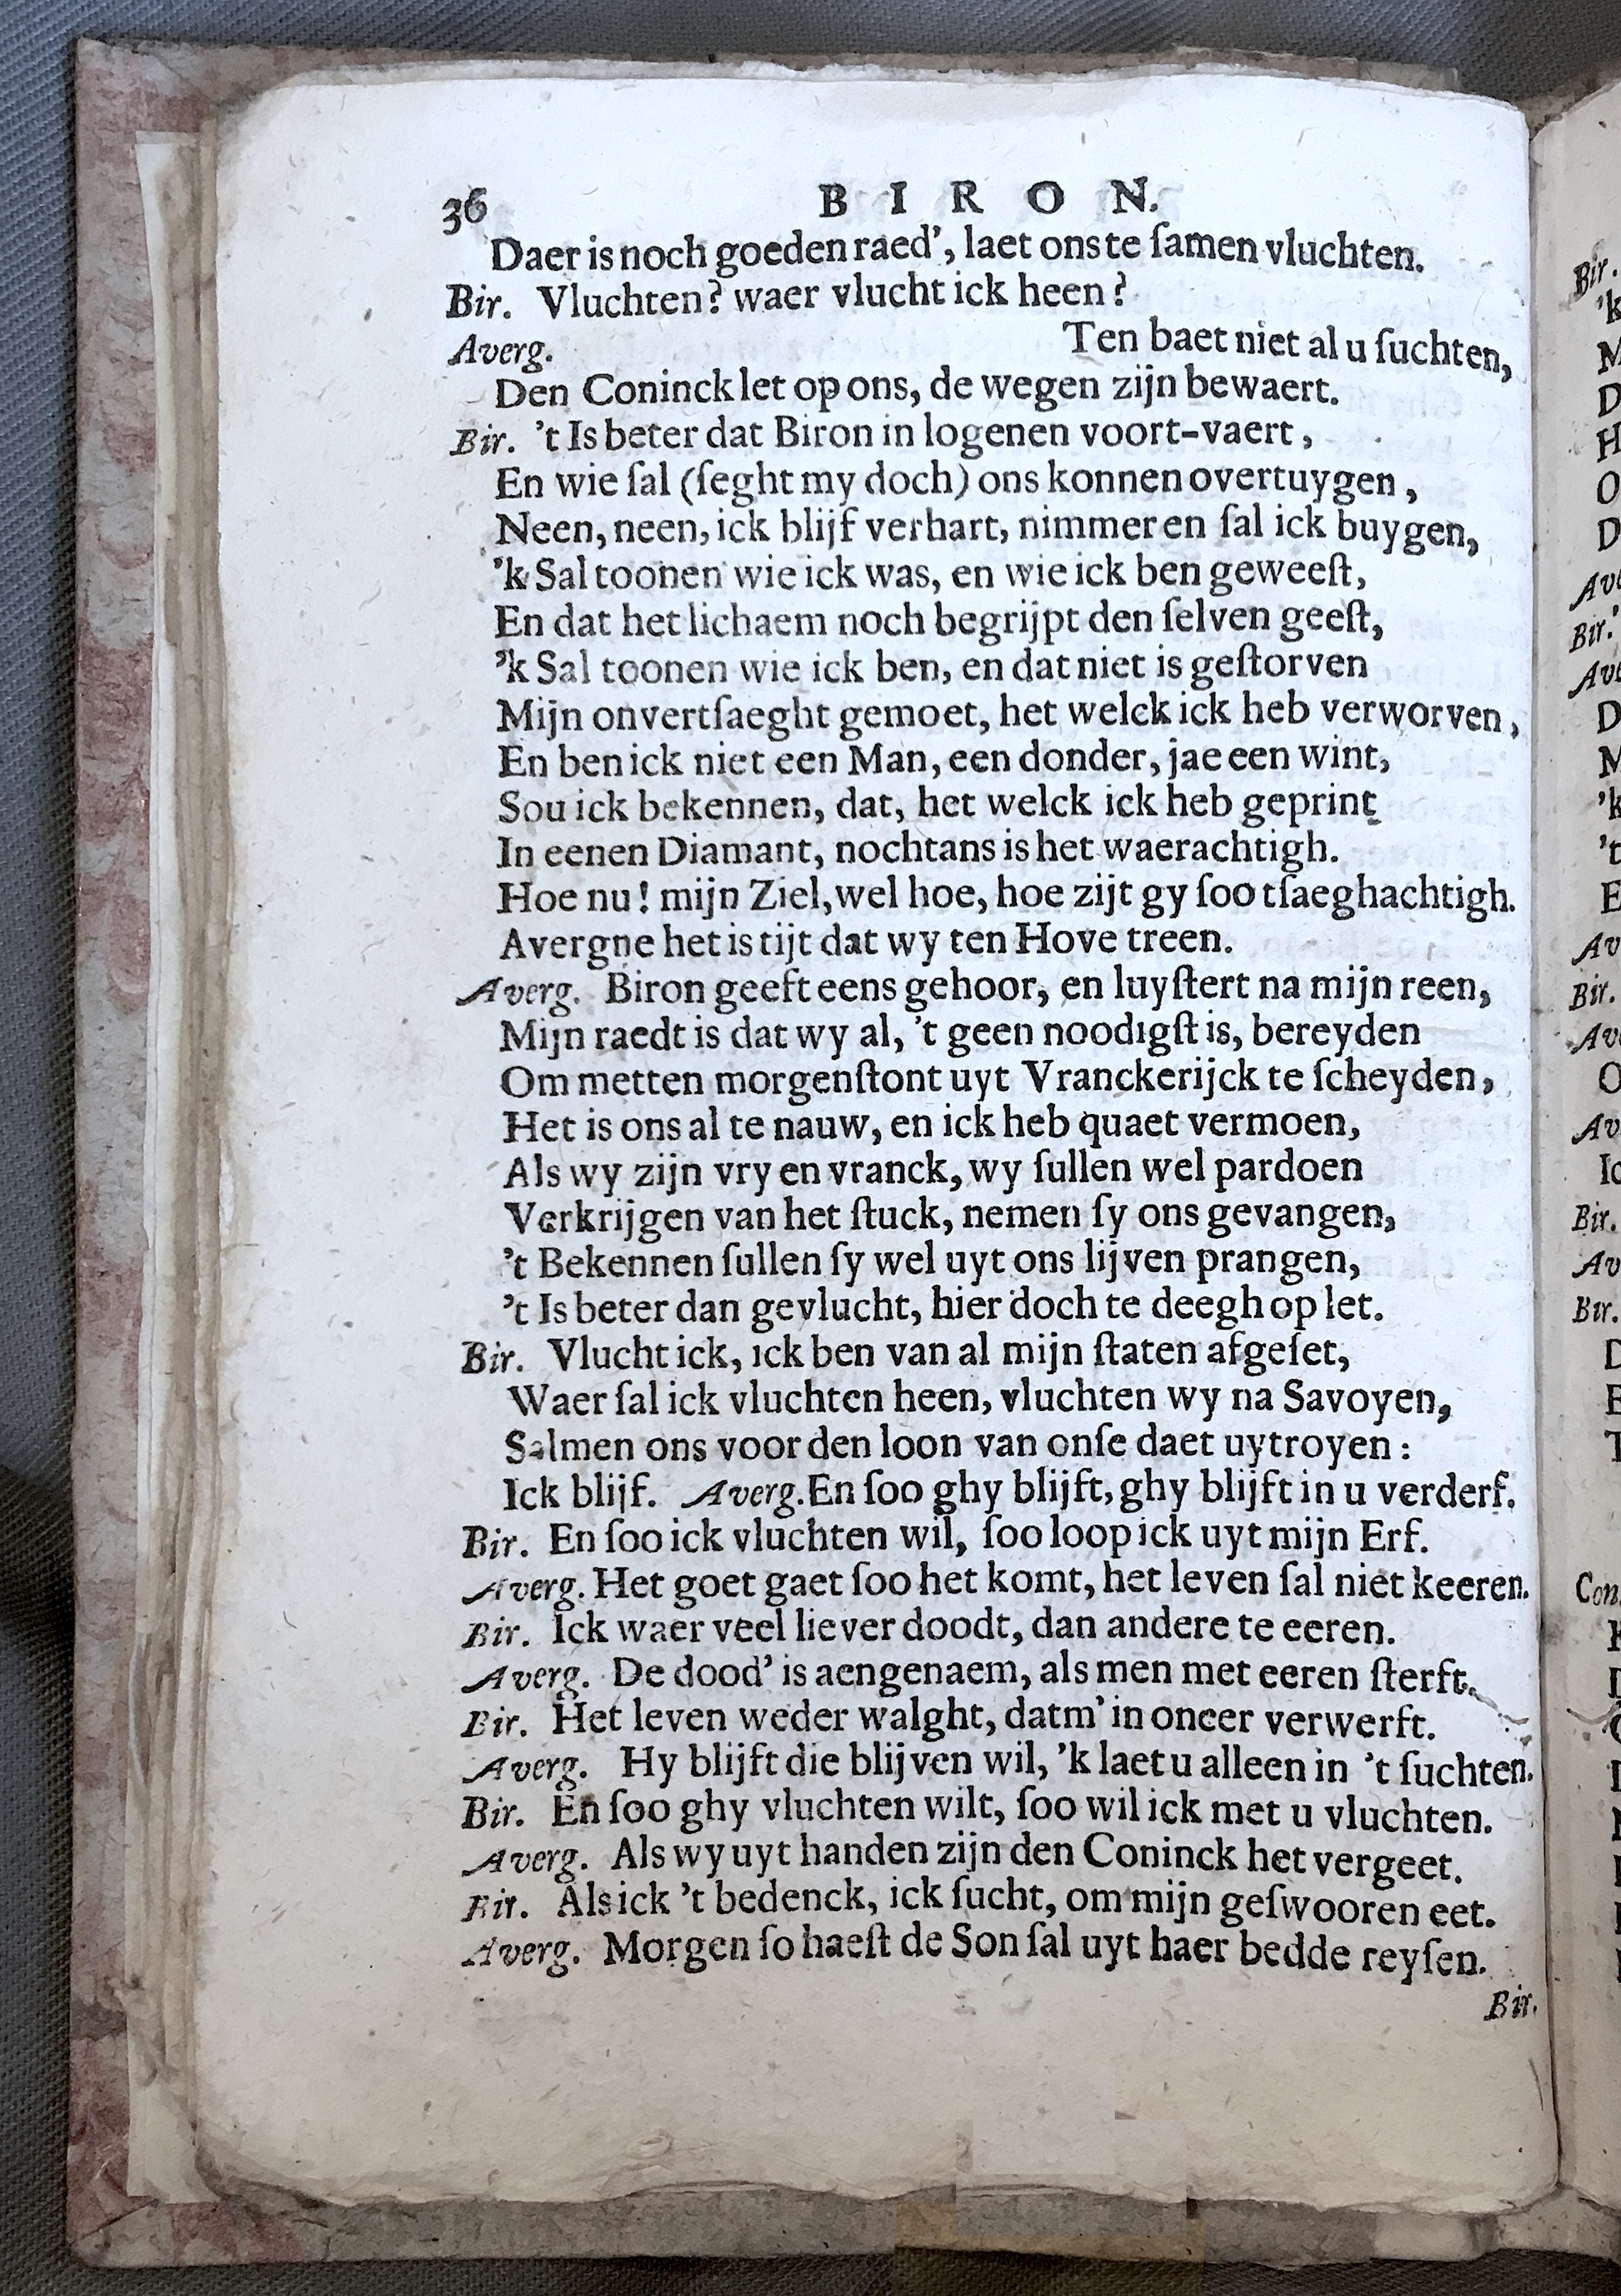 36 BIRON.
Daer is noch goeden raed', laet ons te ſamen vluchten.
Bir. Vluchten? waer vlucht ick heen?
Averg. Ten baet niet al u ſuchten,
Den Coninck let op ons, de wegen zijn bewaert.
Bir. 't Is beter dat Biron in logenen voort-vaert,
En wie ſal (ſeght my doch) ons konnen overtuygen,
Neen, neen, ick blijf verhart, nimmer en ſal ick buygen,
'k Sal toonen wie ick was, en wie ick ben geweeſt,
En dat het lichaem noch begrijpt den ſelven geeſt,
'k Sal toonen wie ick ben, en dat niet is geſtorven
Mijn onvertſaeght gemoet, het welck ick heb verworven,
En ben ick niet een Man, een donder, jae een wint,
Sou ick bekennen, dat, het welck ick heb geprint
In eenen Diamant, nochtans is het waerachtigh.
Hoe nu! mijn Ziel, wel hoe, hoe zijt gy ſoo tſaeghachtigh.
Avergne het is tijt dat wy ten Hove treen.
Averg. Biron geeft eens gehoor, en luyſtert na mijn reen,
Mijn raedt is dat wy al, 't geen noodigſt is, bereyden
Om metten morgenſtont uyt Vranckerijck te ſcheyden,
Het is ons al te nauw, en ick heb quaet vermoen,
Als wy zijn vry en vranck, wy ſullen wel pardoen
Verkrijgen van het ſtuck, nemen ſy ons gevangen,
't Bekennen ſullen ſy wel uyt ons lijven prangen,
't Is beter dan gevlucht, hier doch te deegh op let.
Bir. Vlucht ick, ick ben van al mijn ſtaten afgeſet,
Waer ſal ick vluchten heen, vluchten wy na Savoyen,
Salmen ons voor den loon van onſe daet uytroyen:
Ick blijf. Averg. En ſoo ghy blijft, ghy blijft in u verderf.
Bir. En ſoo ick vluchten wil, ſoo loop ick uyt mijn Erf.
Averg. Het goet gaet ſoo het komt, het leven ſal niet keeren.
Bir. Ick waer veel liever doodt, dan andere te eeren.
Averg. De dood' is aengenaem, als men met eeren ſterft.
Bir. Het leven weder walght, datm' in oneer verwerft.
Averg. Hy blijft die blijven wil, 'k laet u alleen in 't ſuchten.
Bir. En ſoo ghy vluchten wilt, ſoo wil ick met u vluchten.
Averg. Als wy uyt handen zijn den Coninck het vergeet.
Bir. Als ick 't bedenck, ick ſucht, om mijn geſwooren eet.
Averg. Morgen ſo haeſt de Son ſal uyt haer bedde reyſen.
Bir.